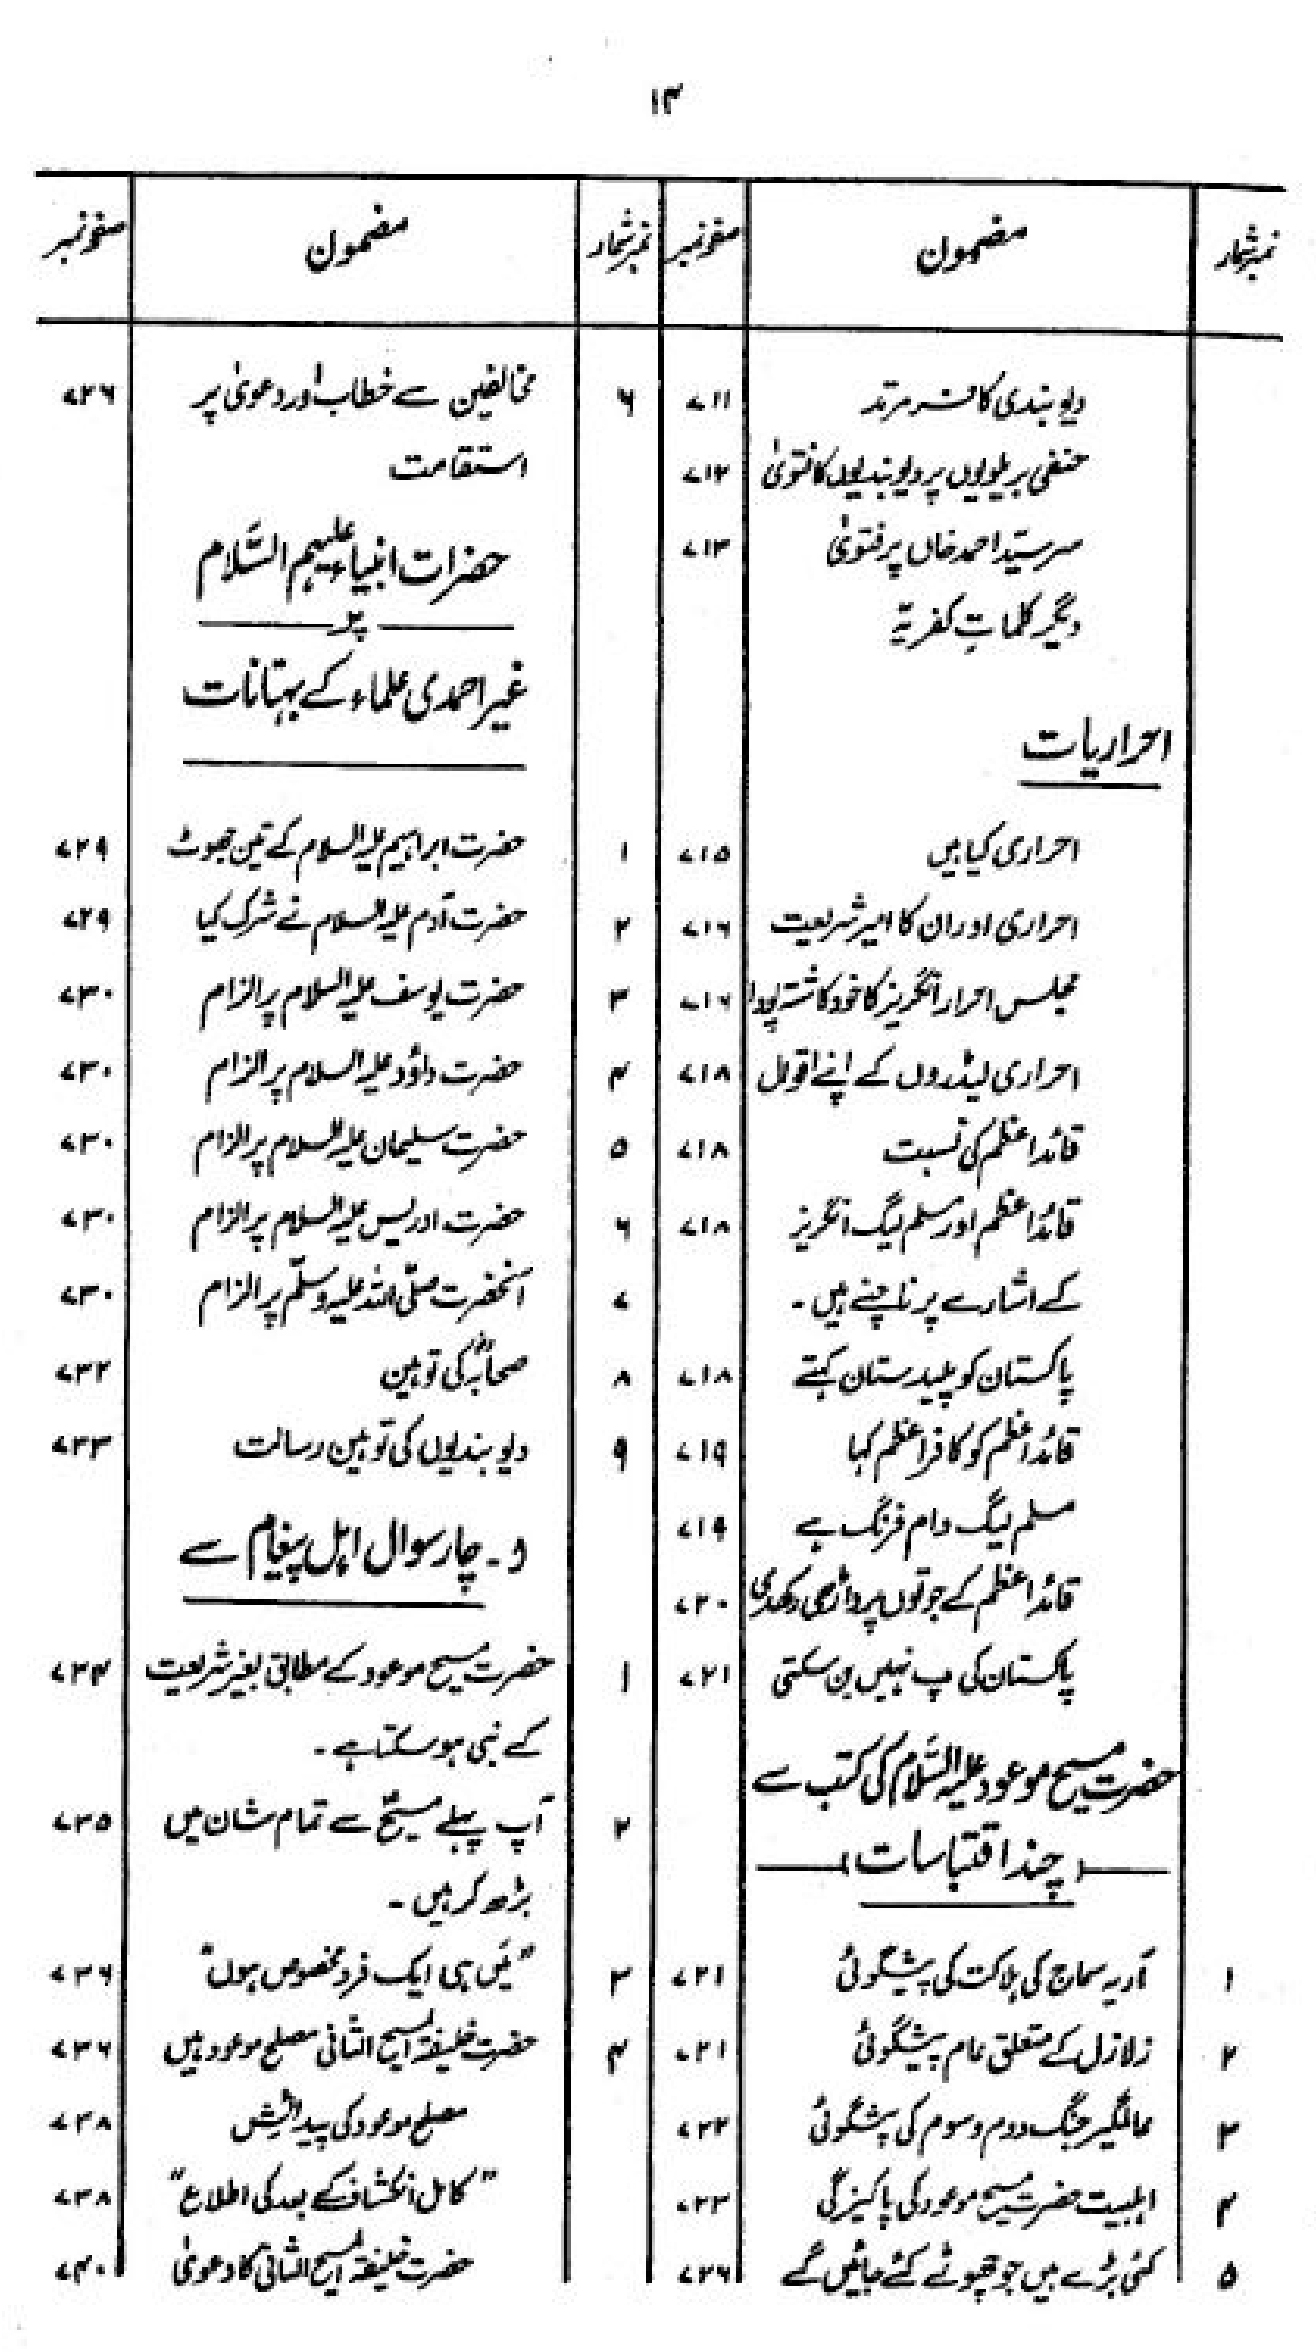 ۱۳
نمبر شمار مضمون صفحہ نمبر
دیوبندی کافر مرتد ۷۱۱
حنفی بریلویوں پر دیوبندیوں کا فتویٰ ۷۱۲
سرسیّد احمد خاں پر فتویٰ ۷۱۳
دیگر کلماتِ کفریّہ
احراریات
احراری کیا ہیں ۷۱۵
احراری اور ان کا امیر شریعت ۷۱۶
مجلس احرار انگریز کا خود کاشتہ پودا ۷۱۶
احراری لیڈروں کے اپنے اقوال ۷۱۸
قائداعظم کی نسبت ۷۱۸
قائداعظم اور مسلم لیگ انگریز ۷۱۸
کے اشارے پر ناچتے ہیں ۔
پاکستان کو پلیدستان کہتے ۷۱۸
قائداعظم کو کافر اعظم کہا ۷۱۹
مسلم لیگ دام فرنگ ہے ۷۱۹
قائداعظم کے جوتوں پر داڑھی رکھدی ۷۲۰
پاکستان کی پ نہیں بن سکتی ۷۲۱
حضرت مسیح موعود علیہ السَّلام کی کتب سے
(چند اقتباسات)
۱ آریہ سماج کی ہلاکت کی پیشگوئی ۷۲۱
۲ زلازل کے متعلق عام پیشگوئی ۷۲۱
۳ عالمگیر جنگ دوم و سوم کی پیشگوئی ۷۲۲
۴ اہلبیت حضرت مسیح موعود کی پاکیزگی ۷۲۳
۵ کئی بڑے ہیں جو چھوٹے کئے جائیں گے ۷۲۶
نمبر شمار مضمون صفحہ نمبر
۶ مخالفین سے خطاب اور دعویٰ پر ۷۲۶
استقامت
حضرات انبیاء علیہم السَّلام
پر
غیر احمدی علماء کے بہتانات
۱ حضرت ابراہیم علیہ السلام کے تین جھوٹ ۷۲۹
۲ حضرت آدم علیہ السلام نے شرک کیا ۷۲۹
۳ حضرت یوسف علیہ السلام پر الزام ۷۳۰
۴ حضرت داؤد علیہ السلام پر الزام ۷۳۰
۵ حضرت سلیمان علیہ السلام پر الزام ۷۳۰
۶ حضرت ادریس علیہ السلام پر الزام ۷۳۰
۷ آنحضرت صلّی اللہ علیہ وسلّم پر الزام ۷۳۰
۸ صحابہؓ کی توہین ۷۳۲
۹ دیوبندیوں کی توہین رسالت ۷۳۳
۔ چار سوال اہل پیغام سے
۱ حضرت مسیح موعود کے مطابق بغیر شریعت ۷۳۴
کے نبی ہو سکتا ہے ۔
۲ آپ پہلے مسیحؑ سے تمام شان میں ۷۳۵
بڑھ کر ہیں ۔
۳ "میں ہی ایک فرد مخصوص ہوں" ۷۳۶
۴ حضرت خلیفۃ المسیح الثانی مصلح موعود ہیں ۷۳۶
مصلح موعود کی پیدائش ۷۳۸
"کامل انکشاف کے بعد کی اطلاع" ۷۳۸
حضرت خلیفۃ المسیح الثانی کا دعویٰ ۷۴۰